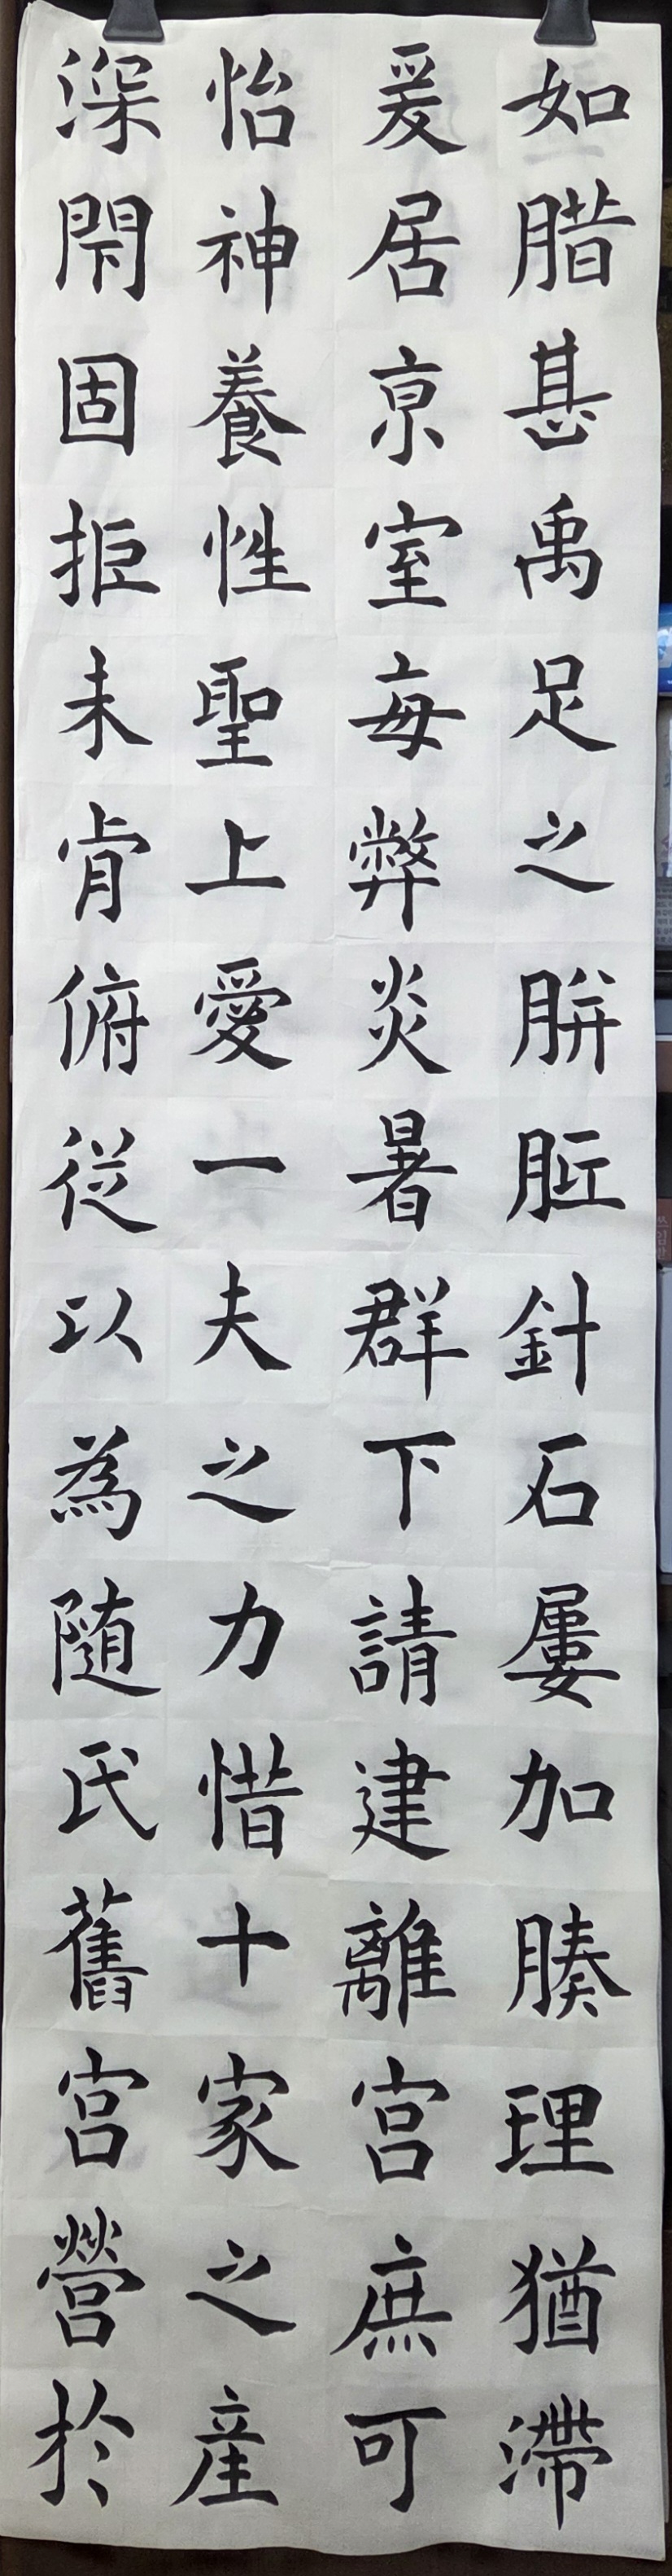 如腊甚禹足之胼胝針石屢加腠理猶滯
爰居亰室每弊炎暑群下請建離宮庶可
怡神養性聖上愛一夫之力惜十家之産
深閇固拒未肯俯從以為随氏舊宮營於